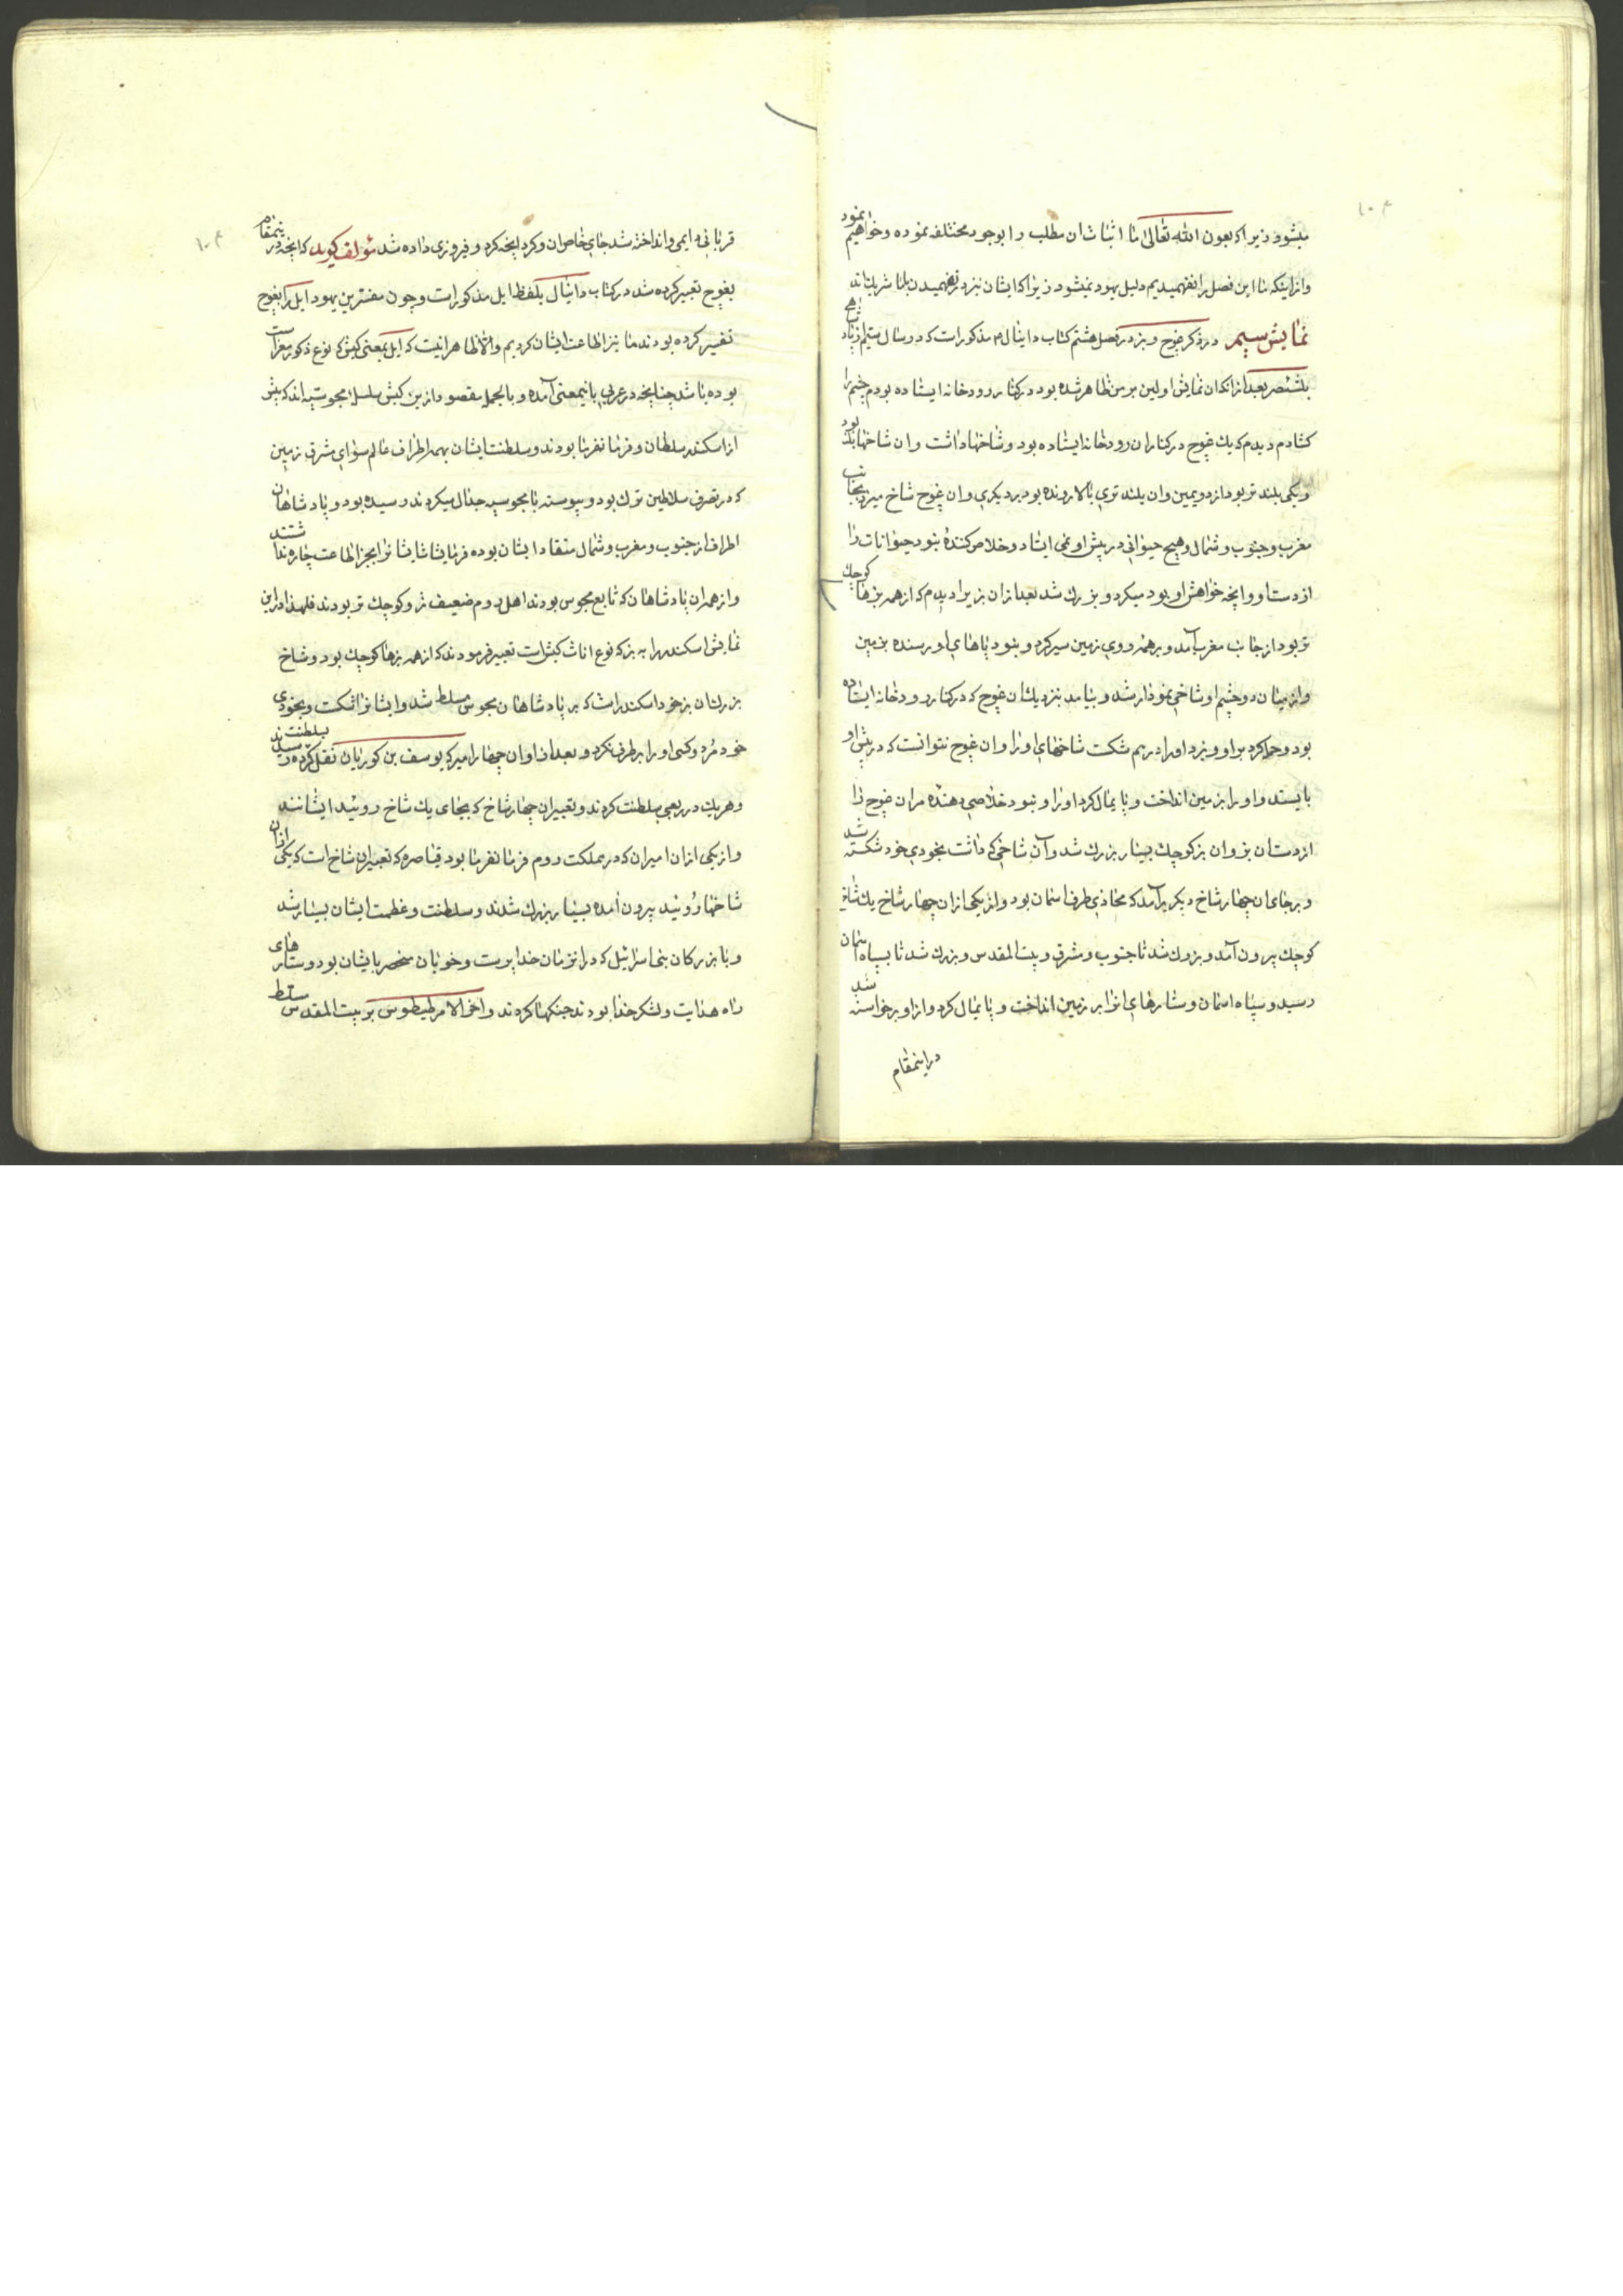 میشود زیرا که بعون الله تعالی ما اثبات ان مطلب را بوجوه مختلفه نموده و خواهیم نمود
و از اینکه ما این فصل را نفهمیدیم دلیل یهود نمیشود زیرا که ایشان نیز در نفهمیدن با ما شریک‌اند
نمایش سیم در ذکر غوچ و بز در فصل هشتم کتاب دانیال مذکور است که در سال سیم از پادشاهی
بلشصر بعد از انکه ان نمایش اولین بر من ظاهر شده بود در کنار رودخانه ایستاده بودم چشم را
کشادم دیدم که یک غوچ در کنار ان رودخانه ایستاده بود و شاخها داشت و ان شاخها بلند بود
و یکی بلند تر بود از دویمین و ان بلند تری بالا رونده بود بر دیکری و ان غوچ شاخ میزد بجانب
مغرب و جنوب و شمال و هیچ حیوانی در پیش او نمی ایستاد و خلاص کننده نبود حیوانات را
از دست او و انچه خواهش او بود میکرد و بزرک شد بعد از ان بز را دیدم که از همه بزها کوچک
تر بود از جانب مغرب آمد و بر همه روی زمین سیر کرد و نبود پاهای او رسنده بزمین
و از میان دو چشم او شاخی نمودار شد و بیامد بنزدیک ان غوچ که در کنار رودخانه ایستاده
بود و حمله کرد بر او و بزد او را درهم شکست شاخهای او را و ان غوچ نتوانست که در پیش او
بایستد و او را بزمین انداخت و پایمال کرد او را و نبود خلاصی دهنده مر ان غوچ را
از دست ان بز و ان بز کوچک بسیار بزرک شد و آن شاخی که داشت بخودی خود شکسته شد
و بر جای ان چهار شاخ دیکر برآمد که محاذی طرف اسمان بود و از یکی از ان چهار شاخ یک شاخ
کوچک بیرون آمد و بزرک شد تا جنوب و شرق و بیت المقدس و بزرک شد تا بسپاه اسمان
رسید و سپاه اسمان و ستارهای انرا بر زمین انداخت و پایمال کرد و از او برخواسته شد
در اینمقام
قربانی دایمی و انداخته شد جای خاص ان و کرد انچه کرد و فیروزی داده شد مؤلف کوید که انچه در ینمقام
بغوچ تعبیر کرده شد در کتاب دانیال بلفظ ایل مذکور است و چون مفسرین یهود ایل را بغوچ
تفسیر کرده بودند ما نیز اطاعت ایشان کردیم والا ظاهر اینست که ایل بمعنی کبش که نوع ذکور معز است
بوده باشد چنانچه در عربی باینمعنی آمده و بالجمله مقصود از ین کبش سلسله مجوسیه اند که پیش
از اسکندر سلطان و فرمانفرما بودند و سلطنت ایشان بهمه اطراف عالم سوای شرق زمین
که در تصرف سلاطین ترک بود و پیوسته با مجوسیه جدال میکردند رسیده بود و پادشاهان
اطراف از جنوب و مغرب و شمال منقاد ایشان بوده فرمایشات ایشانرا بجز اطاعت چاره نداشتند
و از همه ان پادشاهان که تابع مجوس بودند اهل روم ضعیف تر و کوچک تر بودند فلهذا در این
نمایش اسکندر را به بز که نوع اناث کبش است تعبیر فرمودند که از همه بزها کوچک بود و شاخ
بزرک ان بز خود اسکندر است که بر پادشاهان مجوس مسلط شد و ایشانرا شکست و بخودی
خود مرد و کسی او را برطرف نکرد و بعد از او ان چهار امیر که یوسف بن کوریان نقل کرده بسلطنت رسیدند
و هریک در ربعی سلطنت کردند و تعبیر ان چهار شاخ که بجای یک شاخ روئید ایشانند
و از یکی از ان امیران که در مملکت روم فرمانفرما بود قیاصره که تعبیر ان شاخ است که یکی از ان
شاخها روئید بیرون آمده بسیار بزرک شدند و سلطنت و عظمت ایشان بسیار شد
و با بزرکان بنی اسرائیل که در انزمان خدا پرست و خوبان منحصر بایشان بود و ستارهای
راه هدایت و لشکر خدا بودند جنکها کردند و اخرالامر طیطوس بر بیت المقدس مسلط